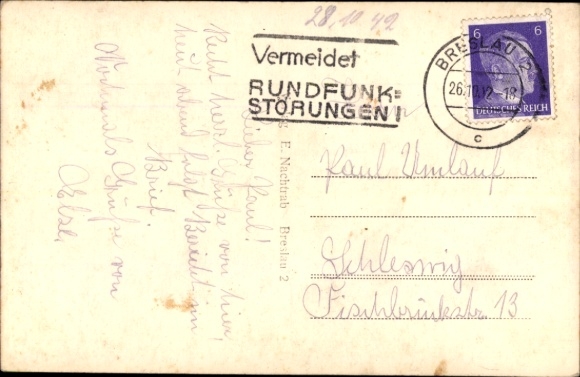 28.10.42
Vermeidet
RUNDFUNK=
STÖRUNGEN!
BRESLAU
26.10.42
c
6 6
DEUTSCHES REICH
Lieber Karl!
Recht herzl. Grüße von hier,
heut abend folgt Bericht im
Brief.
Nochmals Grüße von
E. Nachtrab Breslau 2
Karl Umlauf
Schleswig
Fischbrückstr. 13